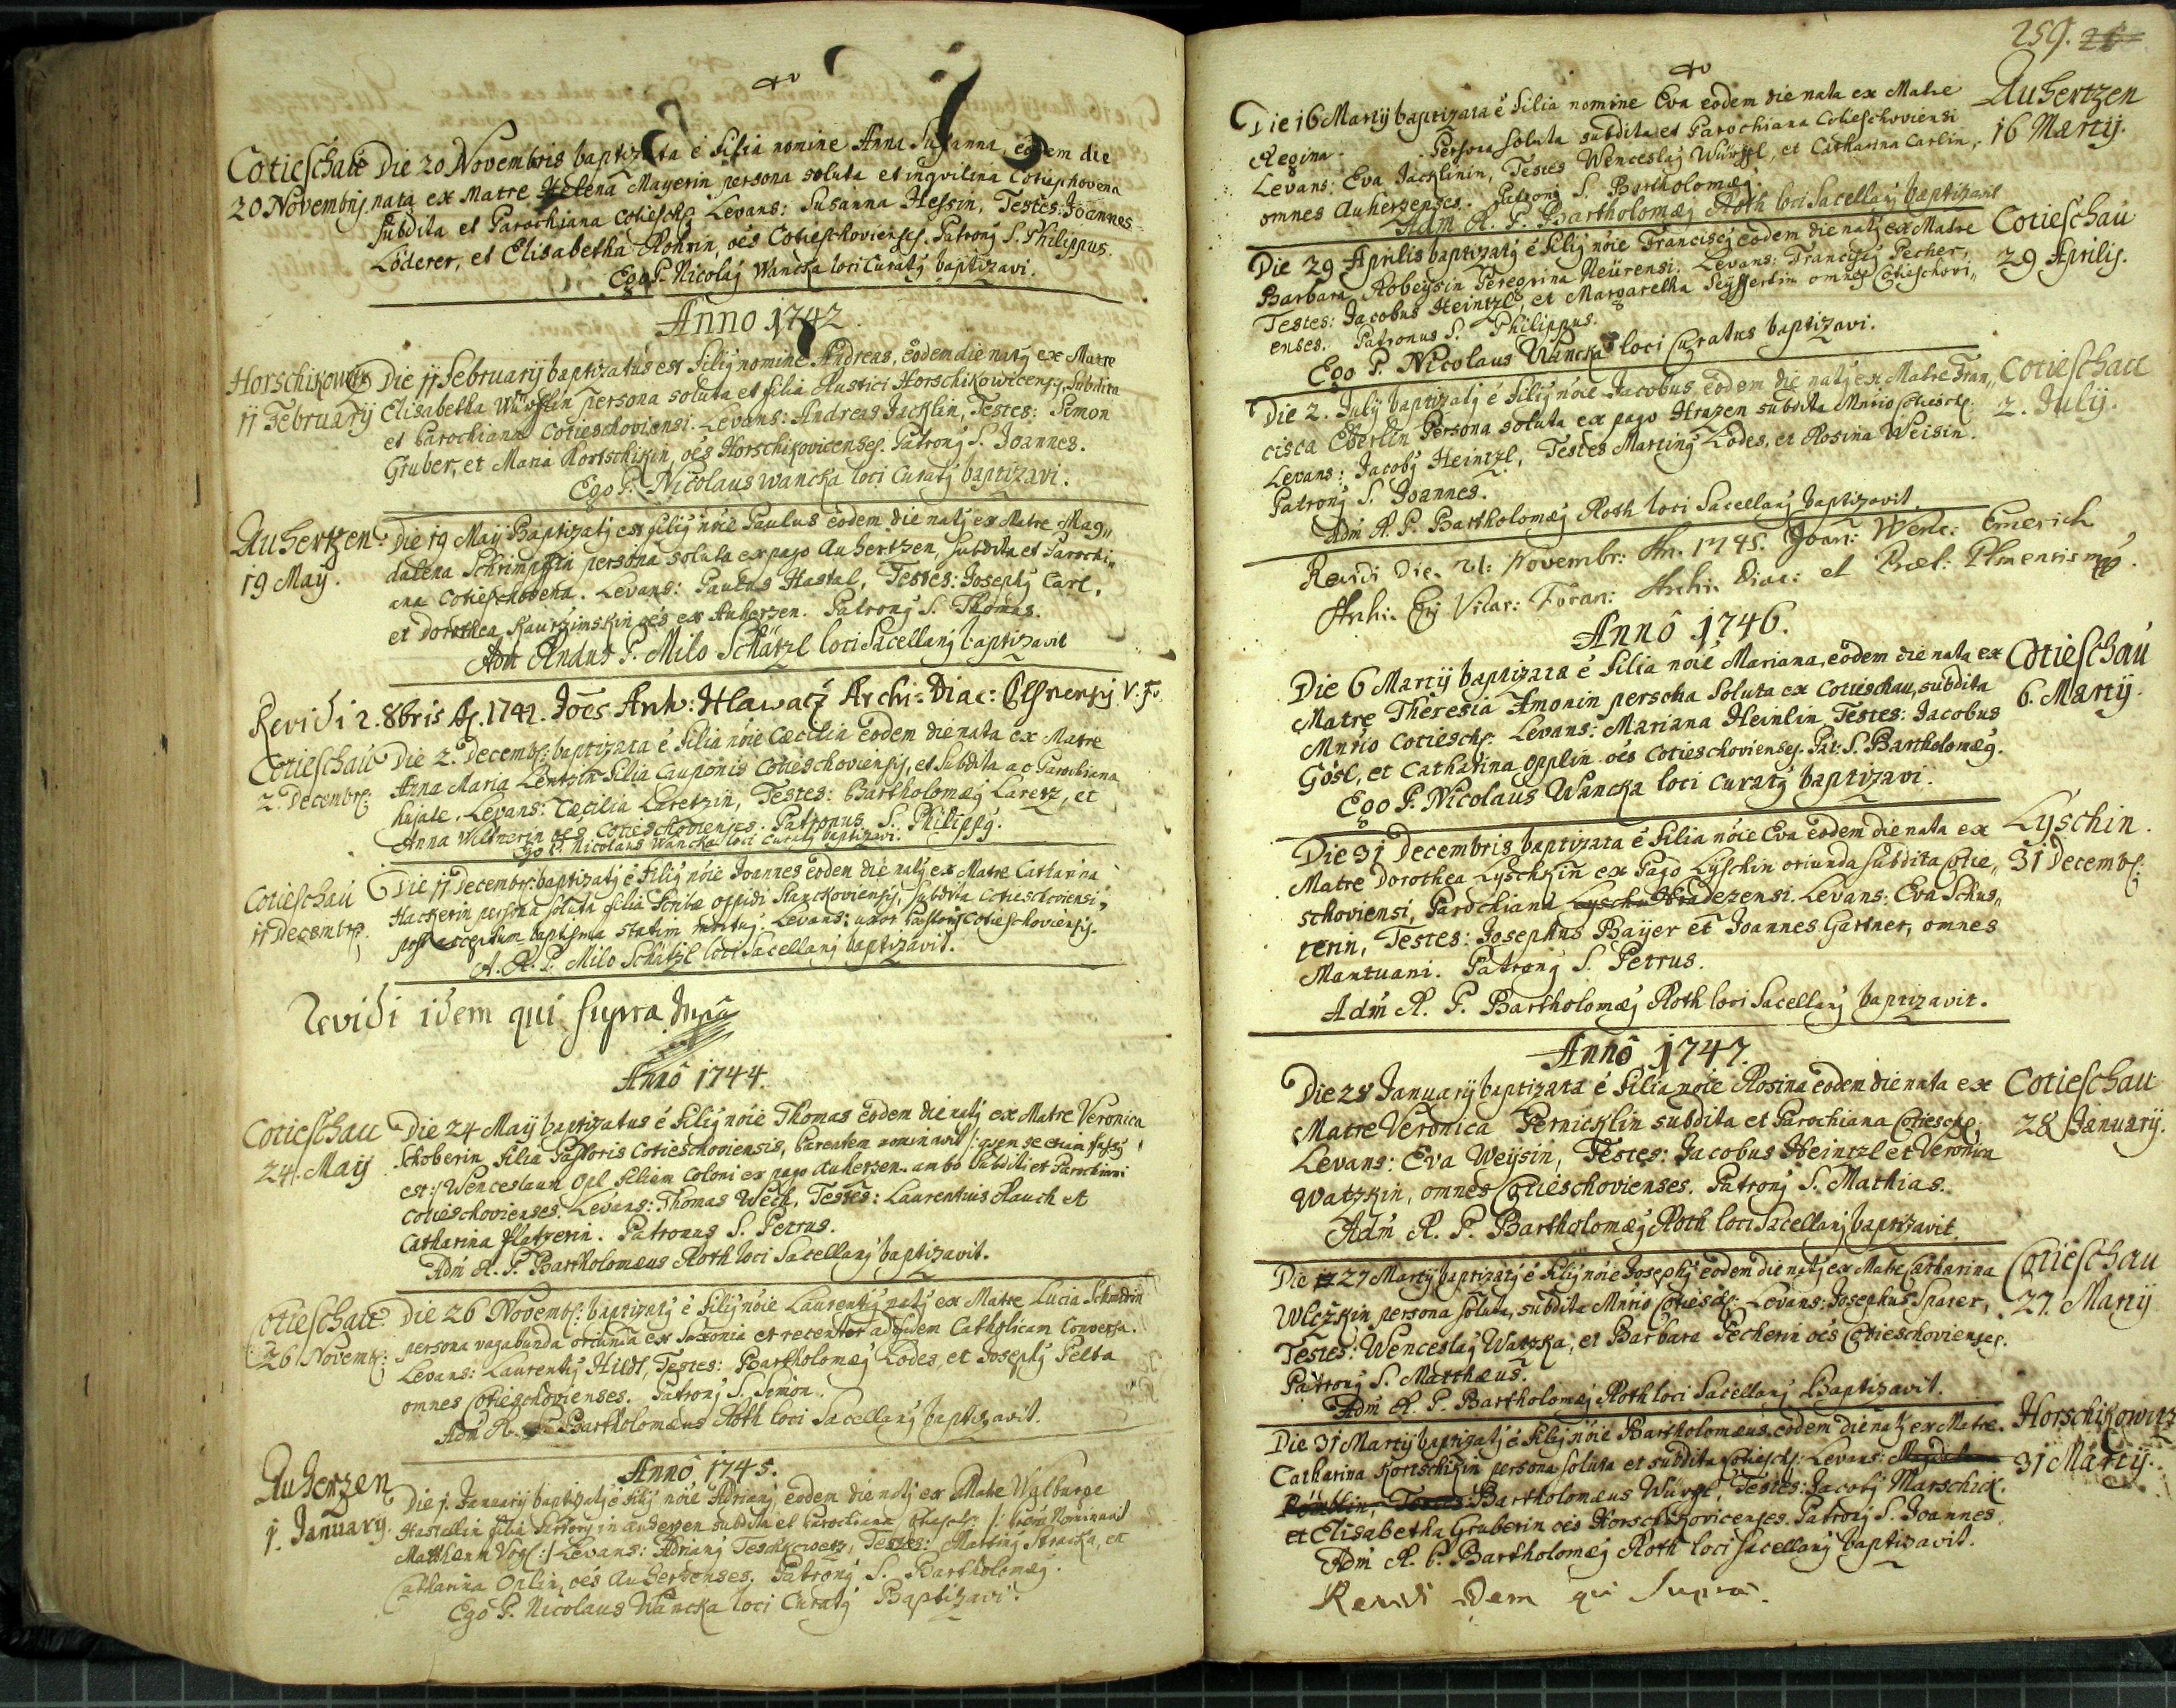 Cotieschau Die 20 Novembris baptizata é filia nomine Anna Susanna, eodem die
20 Novembris nata ex Matre Helena Mayerin persona soluta et inqvilina Cotieschovena
subdita et Parochiana Cotiesch. Levans: Susanna Hessin, Testes: Joannes
Löderer, et Elisabetha Rohrin, oés Cotieschovienses. Patronq S. Philippus.
Ego P. Nicolaq Wancka loci Curatq baptizavi.
Anno 1742
Horschikowitz Die 11 Februarij baptizatus est filiq nomine Andreas, eodem die natq ex Matre
11 Februarij Elisabetha Würfflin persona soluta et filia Rustici Horschikowicensis, Subdita
et Parochiana Cotieschoviensi. Levans: Andreas Jacklin, Testes: Simon
Gruber, et Maria Kortschikin, oés Horschikovicenses. Patronq S. Joannes.
Ego P. Nicolaus Wancka loci Curatq baptizavi.
Auhertzen. Die 19 Maij Baptizatq est filiq nóie Paulus eodem die natq ex Matre Mag„
19 Maij. dalena Schrimpffin persona soluta ex pago Auhertzen, subdita et Parochi„
ana Cotieschovena. Levans: Paulus Hastal, Testes: Josephq Carl,
et Dorothea Kaurzimskin oés ex Auherzen. Patronq S. Thomas.
Adm Rndus P. Milo Schätzl loci Sacellanq baptizavit
Revidi 2. 8bris A. 1742. Joés Ant: Hlawacz Archi-Diac: Plsnensis V. F.
Cotieschau Die 2. Decemb: baptizata é filia nóie Cæcilia eodem die nata ex Matre
2. Decemb: Anna Maria Lentzin filia Cauponis Cotieschoviensis, et Subdita ac Parochiana
hujate. Levans: Cæcilia Laretzin, Testes: Bartholomæq Laretz, et
Anna Wiltnerin oés Cotieschovienses. Patronus S. Philippq.
Ego P. Nicolaus Wancka loci Curatq baptizavi.
Cotieschau Die 11 Decembr: baptizatq é filiq nóie Joannes eodem die natq ex Matre Catharina
11 Decembr. Hackerin persona soluta filia Scribæ oppidi Stanckoviensis, subdita Cotieschoviensi,
post acceptum baptisma statim mortuq. Levans: uxor Pastoris Cotieschoviensis.
A. R. P. Milo Schätzl loci Sacellanq baptizavit.
Revidi idem qui supra mpa
Anno 1744.
Cotieschau Die 24 Maij baptizatus é filiq nóie Thomas eodem die natq ex Matre Veronica
24. Maij Schoberin filia Pastoris Cotieschoviensis, Parentem nominavit /: quem se etiam fassq
est :/ Wenceslaum Opl filium Coloni ex pago Auherzen. ambo subditi et Parochiani
Cotieschovienses. Levans: Thomas Wech, Testes: Laurentius Rauch et
Catharina Platzerin. Patronus S. Petrus.
Adm R. P. Bartholomæus Roth loci Sacellanq baptizavit.
Cotieschau Die 26 Novemb: baptizatq é filiq nóie Laurentiq natq ex Matre Lucia Schmidin
26 Novemb: persona vagabunda oriunda ex Saxonia et recenter ad fidem Catholicam Conversa.
Levans: Laurentiq Hildt, Testes: Bartholomæq Lodes, et Josephq Pelta
omnes Cotieschovienses. Patronq S. Simon.
Adm R. P. Bartholomæus Roth loci Sacellanq baptizavit.
Anno 1745.
Auherzen Die 1. Januarij baptizatq é filiq nóie Adrianq eodem die natq ex Matre Walburga
1. January. Hastallin filia Sartoris in Auherzen subdita et Parochiana Cotiesch: /: Nominavit
Matthæum Vogl :/ Levans: Adrianq Teschkowetz, Testes: Martinq Stracka, et
Catharina Oplin, oés Auherzenses. Patronq S. Bartholomæq.
Ego P. Nicolaus Wancka loci Curatq Baptizavi.
259. 28
Die 16 Martij baptizata é filia nomine Eva eodem die nata ex Matre Auhertzen
Regina Persona soluta subdita et Parochiana Cotieschoviensi 16 Martij.
Levans: Eva Jacklinin, Testes Wenceslaq Würffl, et Catharina Carlin,
omnes Auherzenses. Patronq S. Bartholomæq.
Adm R. P. Bartholomæq Roth loci Sacellanq baptizavit
Die 29 Aprilis baptizatq é filiq nóie Franciscq eodem die natq ex Matre Cotieschau
Barbara Robeysin Peregrina Neürensi. Levans: Franciscq Pecher, 29 Aprilis.
Testes: Jacobus Heintzl, et Margaretha Seyffertin omnes Cotieschovi„
enses. Patronus S. Philippus.
Ego P. Nicolaus Wancka loci Curatus baptizavi.
Die 2. Julij baptizatq é filiq nóie Jacobus, eodem die natq ex Matre Fran„ Cotieschau
cisca Eberlin Persona soluta ex pago Hrazen subdita Mnrio Cotiesch. 2. Julij.
Levans: Jacobq Heintzl, Testes Martinq Lodes, et Rosina Weisin.
Patronq S. Joannes.
Adm R. P. Bartholomæq Roth loci Sacellanq baptizavit
Revidi Die 21: Novembr: An. 1745. Joan: Wenc: Emerich
Archi: Epi Vicar: Foran: Archi: Diac: et Præl: Plsnensis mp.
Anno 1746.
Die 6 Martij baptizata é filia nóie Mariana, eodem die nata ex Cotieschau
Matre Theresia Amonin persona soluta ex Cotieschau, subdita 6. Martij.
Mnrio Cotiesch. Levans: Mariana Heinlin, Testes: Jacobus
Gösl, et Catharina Opplin oés Cotieschovienses. Pat: S. Bartholomæq.
Ego P. Nicolaus Wancka loci Curatq baptizavi.
Die 31 Decembris baptizata é filia nóie Eva eodem die nata ex Lyschin.
Matre Dorothea Lyschkin ex Pago Lyschin oriunda subdita Cotie„ 31 Decemb:
schoviensi, Parochiana Lysch Hradezensi. Levans: Eva Schus„
terin, Testes: Josephus Baijer et Joannes Gartner, omnes
Mantuani. Patronq S. Petrus.
Adm R. P. Bartholomæq Roth loci Sacellanq baptizavit.
Anno 1747.
Die 28 Januarij baptizata é filia nóie Rosina eodem die nata ex Cotieschau
Matre Veronica Pernicklin subdita et Parochiana Cotiesch. 28 January.
Levans: Eva Weysin, Testes: Jacobus Heintzl et Veronin
Watzkin, omnes Cotieschovienses. Patronq S. Mathias.
Adm R. P. Bartholomæq Roth loci Sacellanq baptizavit.
Die 27 Martij baptizatq é filiq nóie Josephq eodem die natq ex Matre Catharina Cotieschau
Wlczkin persona soluta, subdita Mnrio Cotiesch: Levans: Josephus Sparer, 27. Martij
Testes: Wenceslaq Watzka, et Barbara Pecherin oés Cotieschovienses.
Patronq S. Matthæus.
Adm R. P. Bartholomæq Roth loci Sacellanq Baptizavit.
Die 31 Martij baptizatq é filiq nóie Bartholomæus eodem die natq ex Matre Horschikowitz
Catharina Kortschikin persona soluta et subdita Cotiesch: Levans: Magdalena 31 Martij.
Testes: Bartholomæus Würffl, Testes: Jacobq Marschick
et Elisabetha Gruberin oés Horschikovicenses. Patronq S. Joannes.
Adm R. P. Bartholomæq Roth loci Sacellanq baptizavit.
Revidi Idem qui Supra.